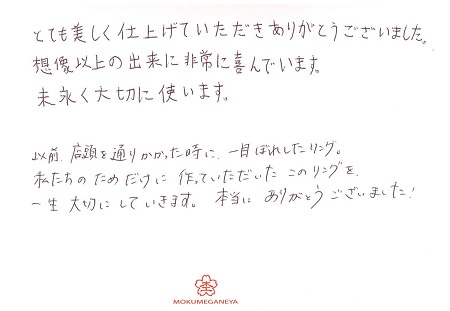 とても美しく仕上げていただきありがとうございました。
想像以上の出来に非常に喜んでいます。
末永く大切に使います。
以前、店頭を通りかかった時に、一目ぼれしたリング。
私たちのためだけに作っていただいたこのリングを、
一生大切にしていきます。本当にありがとうございました！
MOKUMEGANEYA